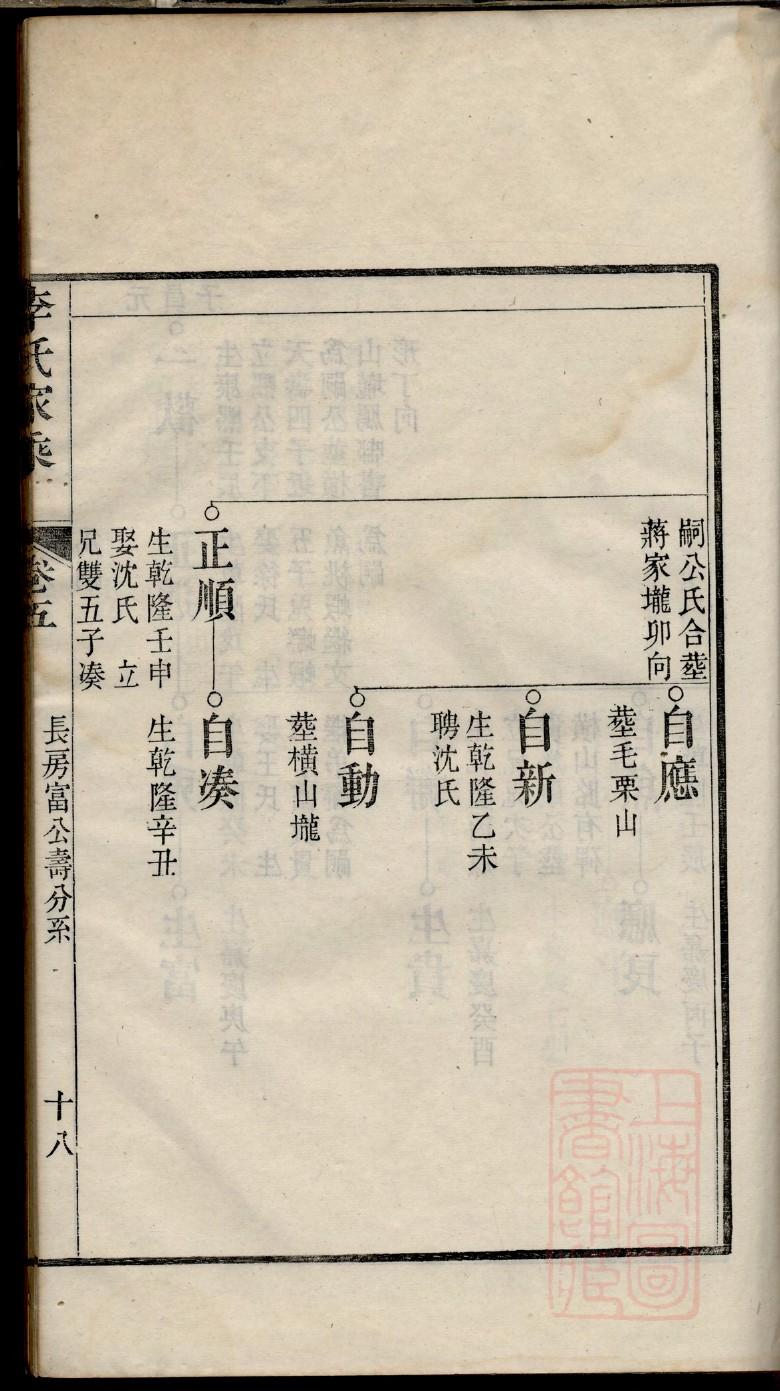 嗣公氏合塟
蔣家壠卯向
自應
塟毛栗山
自新
生乾隆乙未
聘沈氏
自動
塟橫山壠
正順
生乾隆壬申
娶沈氏　立
兄雙五子凑
自凑
生乾隆辛丑
李氏家乘
卷五
長房富公壽分系
十八
上海圖書館藏